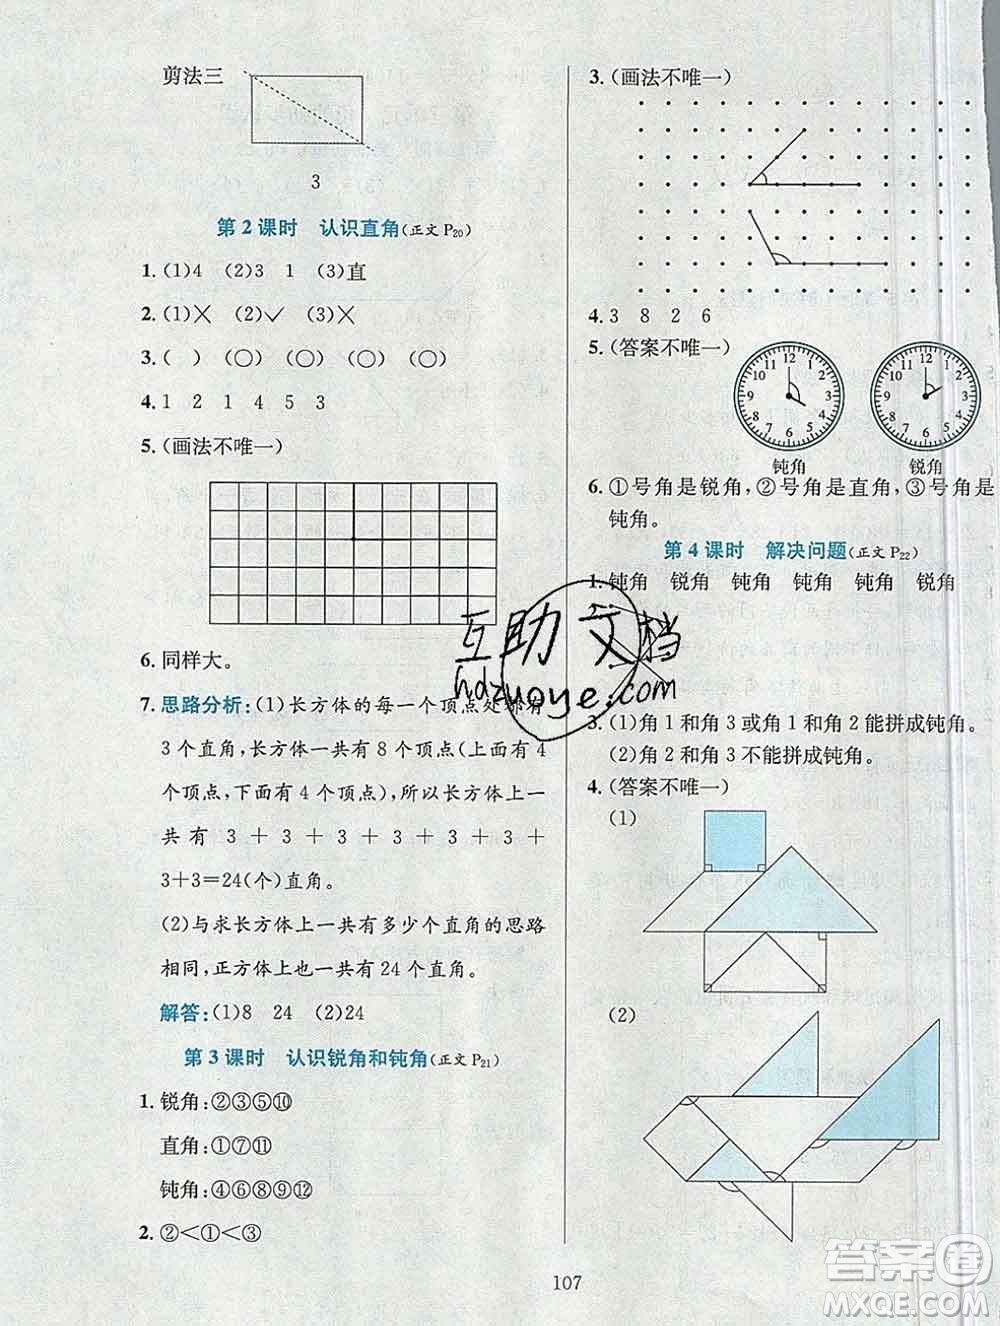 剪法三
3
第2课时 认识直角(正文P20)
1. (1)4 (2)3 1 (3)直
2. (1)× (2)✓ (3)×
3. ( ) (○) (○) (○) (○)
4. 1 2 1 4 5 3
5. (画法不唯一)
6. 同样大。
7. 思路分析:(1)长方体的每一个顶点处都有
3个直角,长方体一共有8个顶点(上面有4
个顶点,下面有4个顶点),所以长方体上一
共有 3 + 3 + 3 + 3 + 3 + 3 +
3+3=24(个)直角。
(2)与求长方体上一共有多少个直角的思路
相同,正方体上也一共有24个直角。
解答:(1)8 24 (2)24
第3课时 认识锐角和钝角(正文P21)
1. 锐角:②③⑤⑩
直角:①⑦⑪
钝角:④⑥⑧⑨⑫
2. ②<①<③
3. (画法不唯一)
4. 3 8 2 6
5. (答案不唯一)
12 1 2 3 4 5 6 7 8 9 10 11
12 1 2 3 4 5 6 7 8 9 10 11
钝角 锐角
6. ①号角是锐角,②号角是直角,③号角是
钝角。
第4课时 解决问题(正文P22)
1. 钝角 锐角 钝角 钝角 钝角 锐角
2.
3. (1)角1和角3或角1和角2能拼成钝角。
(2)角2和角3不能拼成钝角。
4. (答案不唯一)
(1)
(2)
107
互助文档
hdzuoye.com
答案圈
MXQE.COM